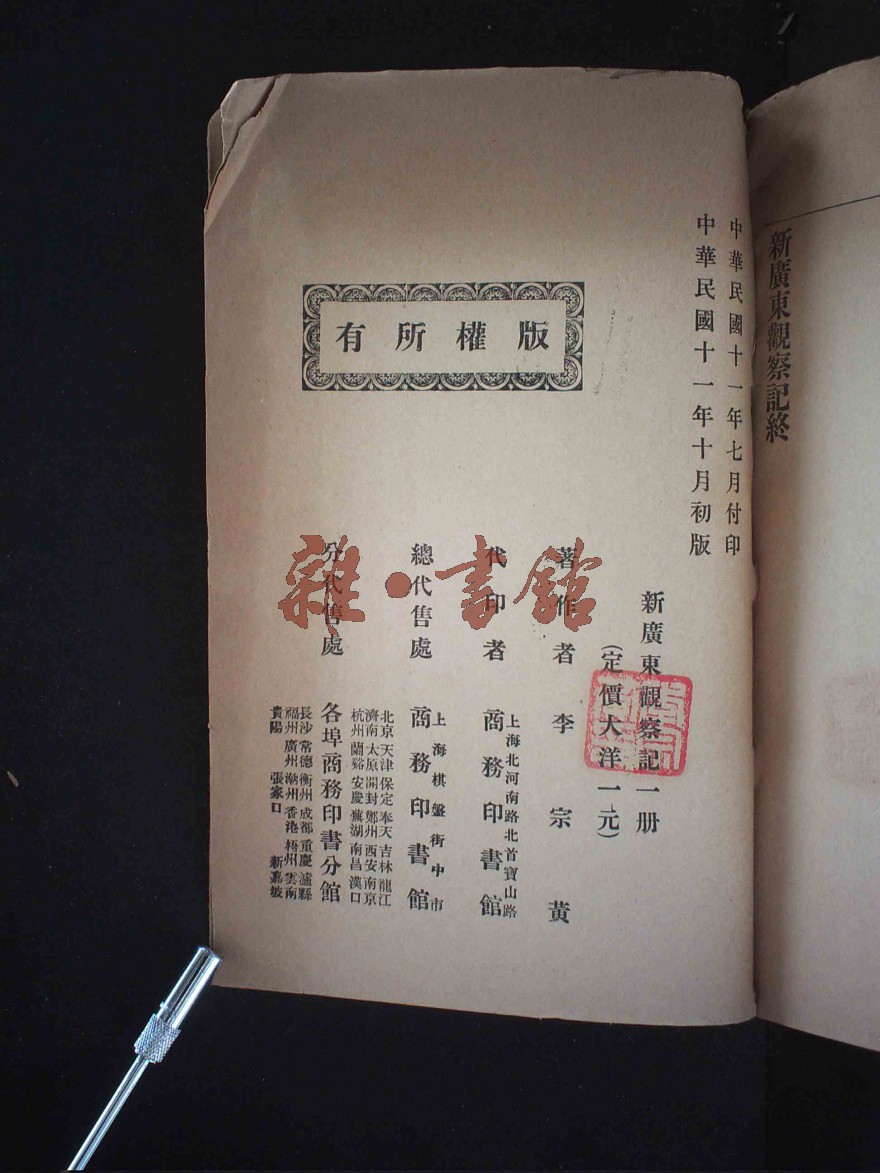 新廣東觀察記終
中華民國十一年七月付印
中華民國十一年十月初版
版權所有
新廣東觀察記一册
(定價大洋一元)
著作者 李宗黃
代印者 上海北河南路北首寶山路 商務印書館
總代售處 上海棋盤街中市 商務印書館
分代售處
北京天津保定奉天吉林龍江
濟南太原開封鄭州西安南京
杭州蘭谿安慶蕪湖南昌漢口
各埠商務印書分館
長沙常德衡州成都重慶瀘縣
福州廣州潮州香港梧州雲南
貴陽 張家口 新嘉坡
雜·書館